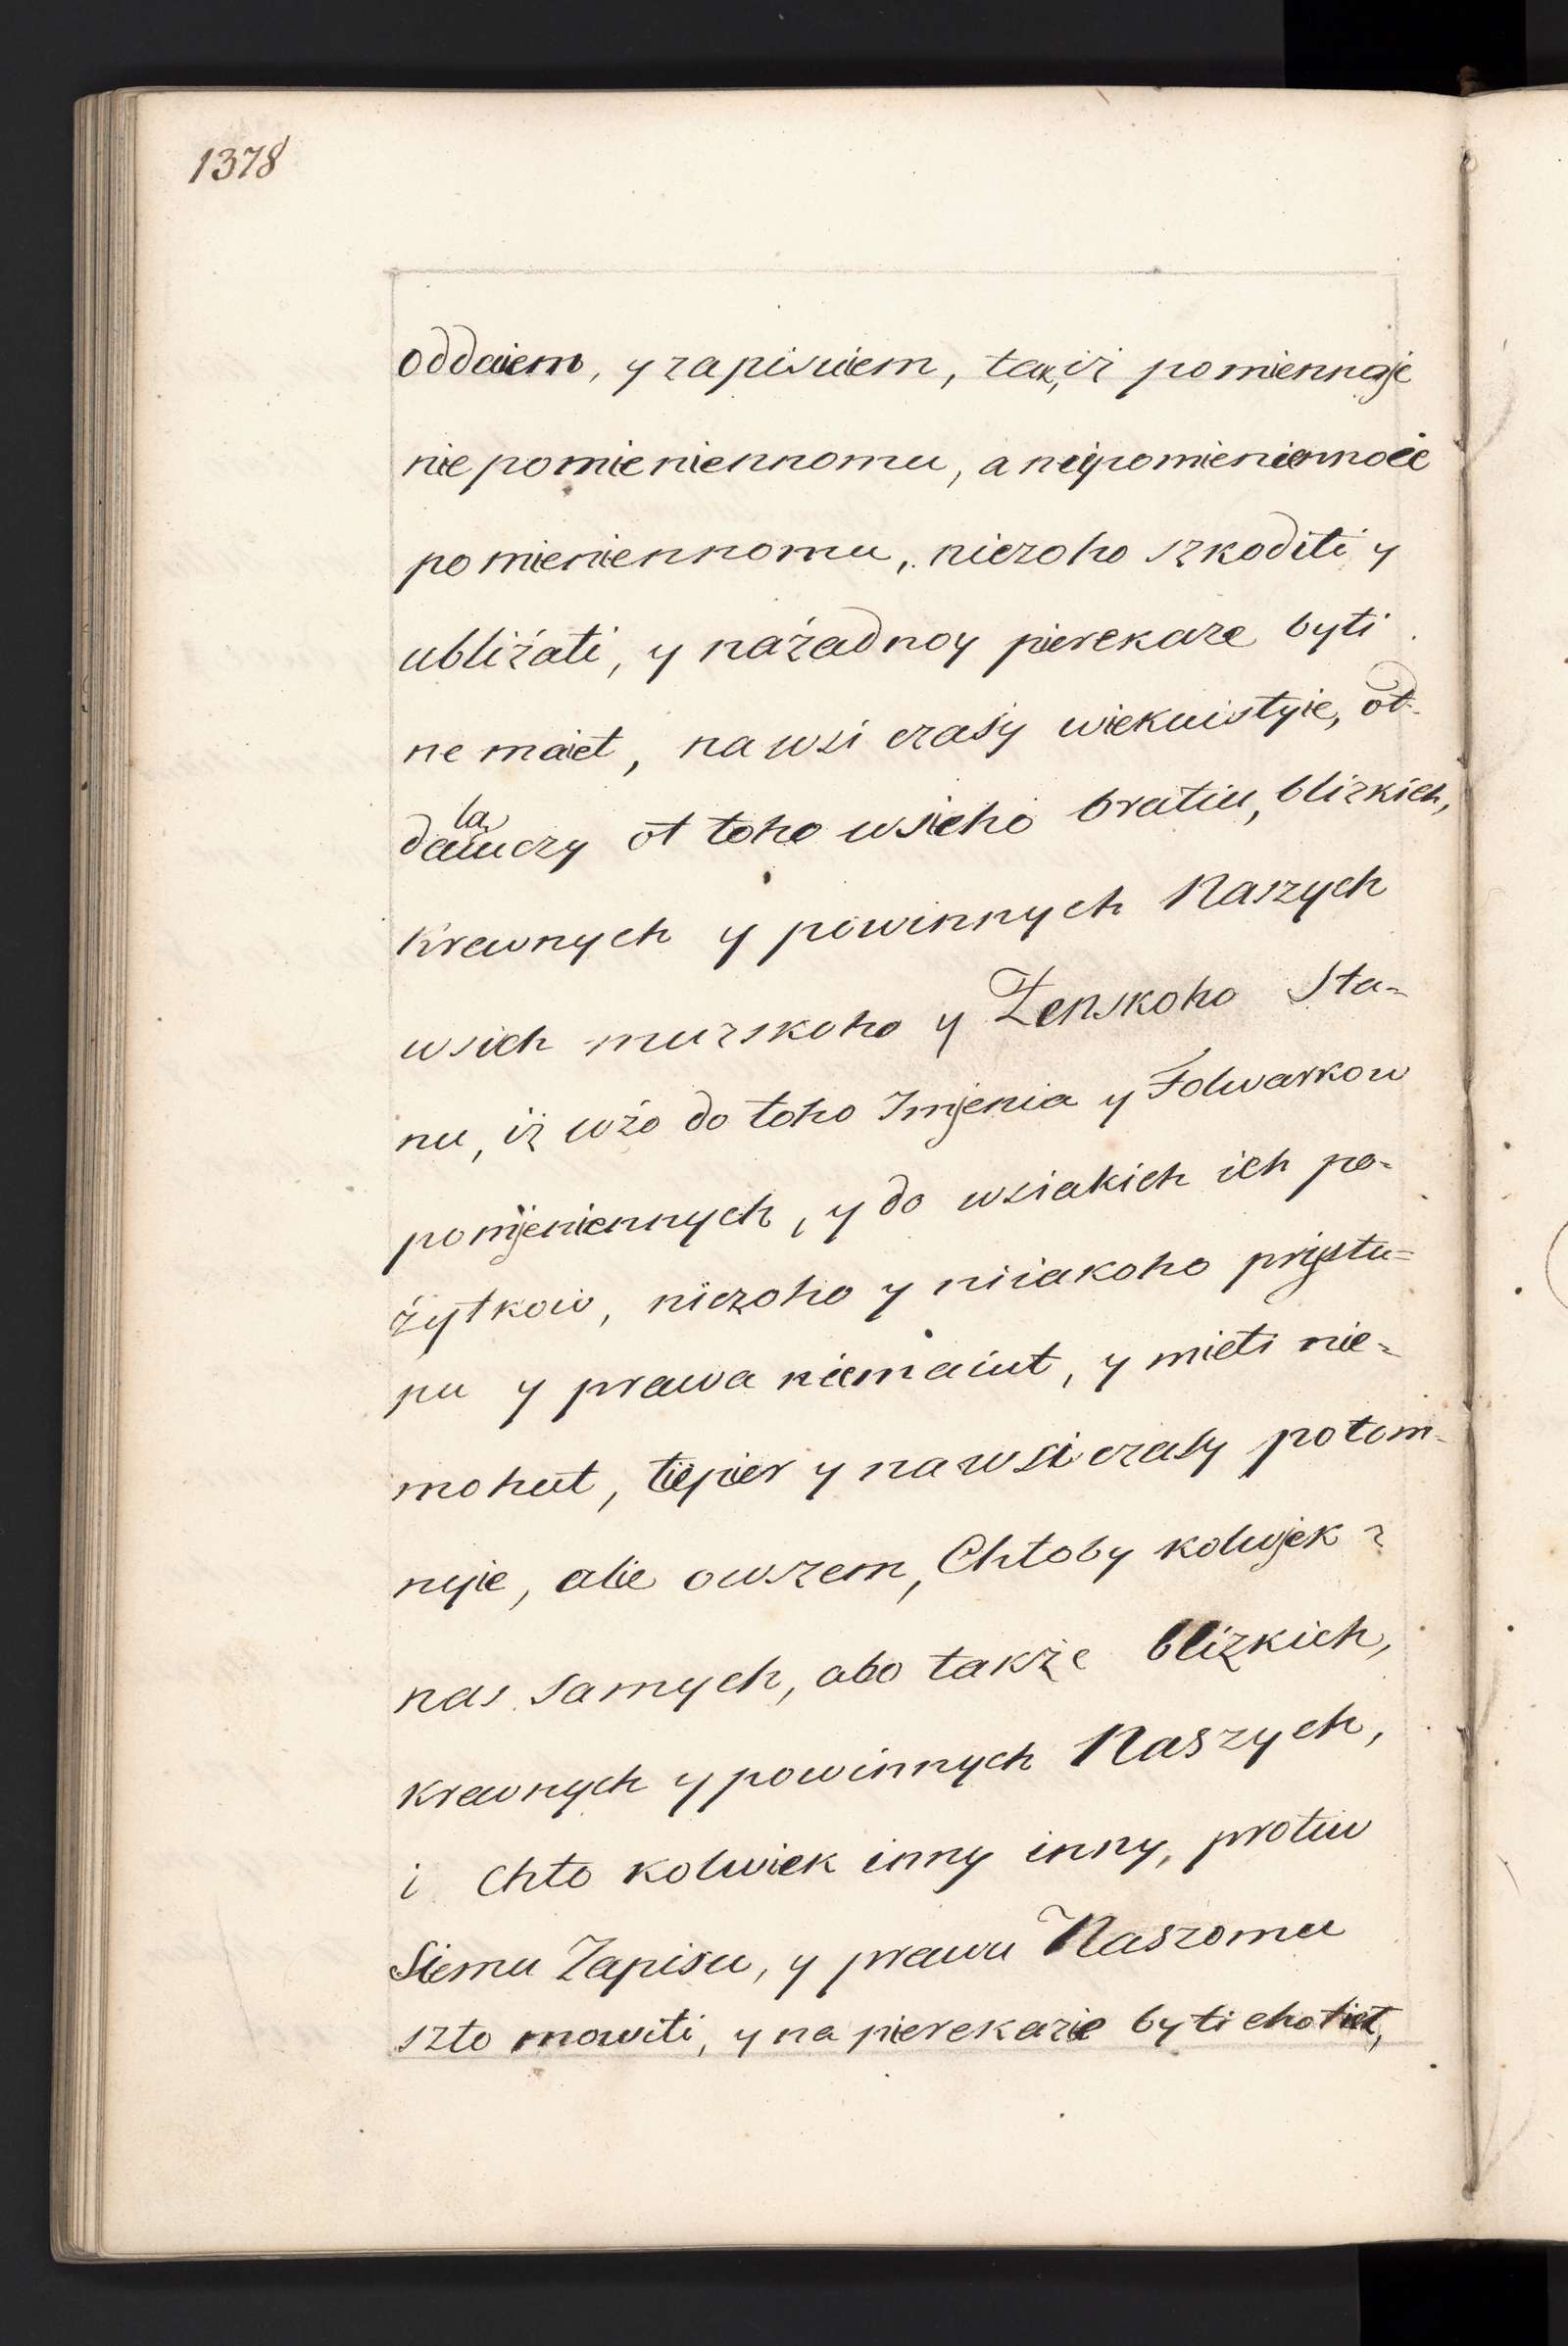 1378
oddaiem, y zapisuiem, tak, iż pomiennoje
nie pomieniennomu, a niepomieniennoie
pomieniennomu, niczoho szkoditi y
ubliżati, y nażadnoy pierekaze byti
ne maiet, na wsi czasy wiekuistyie, ot-
dalaiuczy ot toho wsieho bratiu, blizkich,
Krewnych y powinnych Naszych
wsich muzskoho y Żenskoho Sta-
nu, iż wżo do toho Imjenia y Folwarkow
pomjeniennych, y do wsiakich ich po-
żytkow, niczoho y niiakoho pristu-
pu y prawa niemaiut, y mieti nie-
mohut, tiepier y na wsi czasy potom-
nyie, alie owszem, Chtoby kolwjek z
nas samych, abo także blizkich,
krewnych y powinnych Naszych,
i chto kolwiek inny inny, protiw
Siemu Zapisu, y prawu Naszomu
szto mowiti, y na pierekazie byti chotiet,